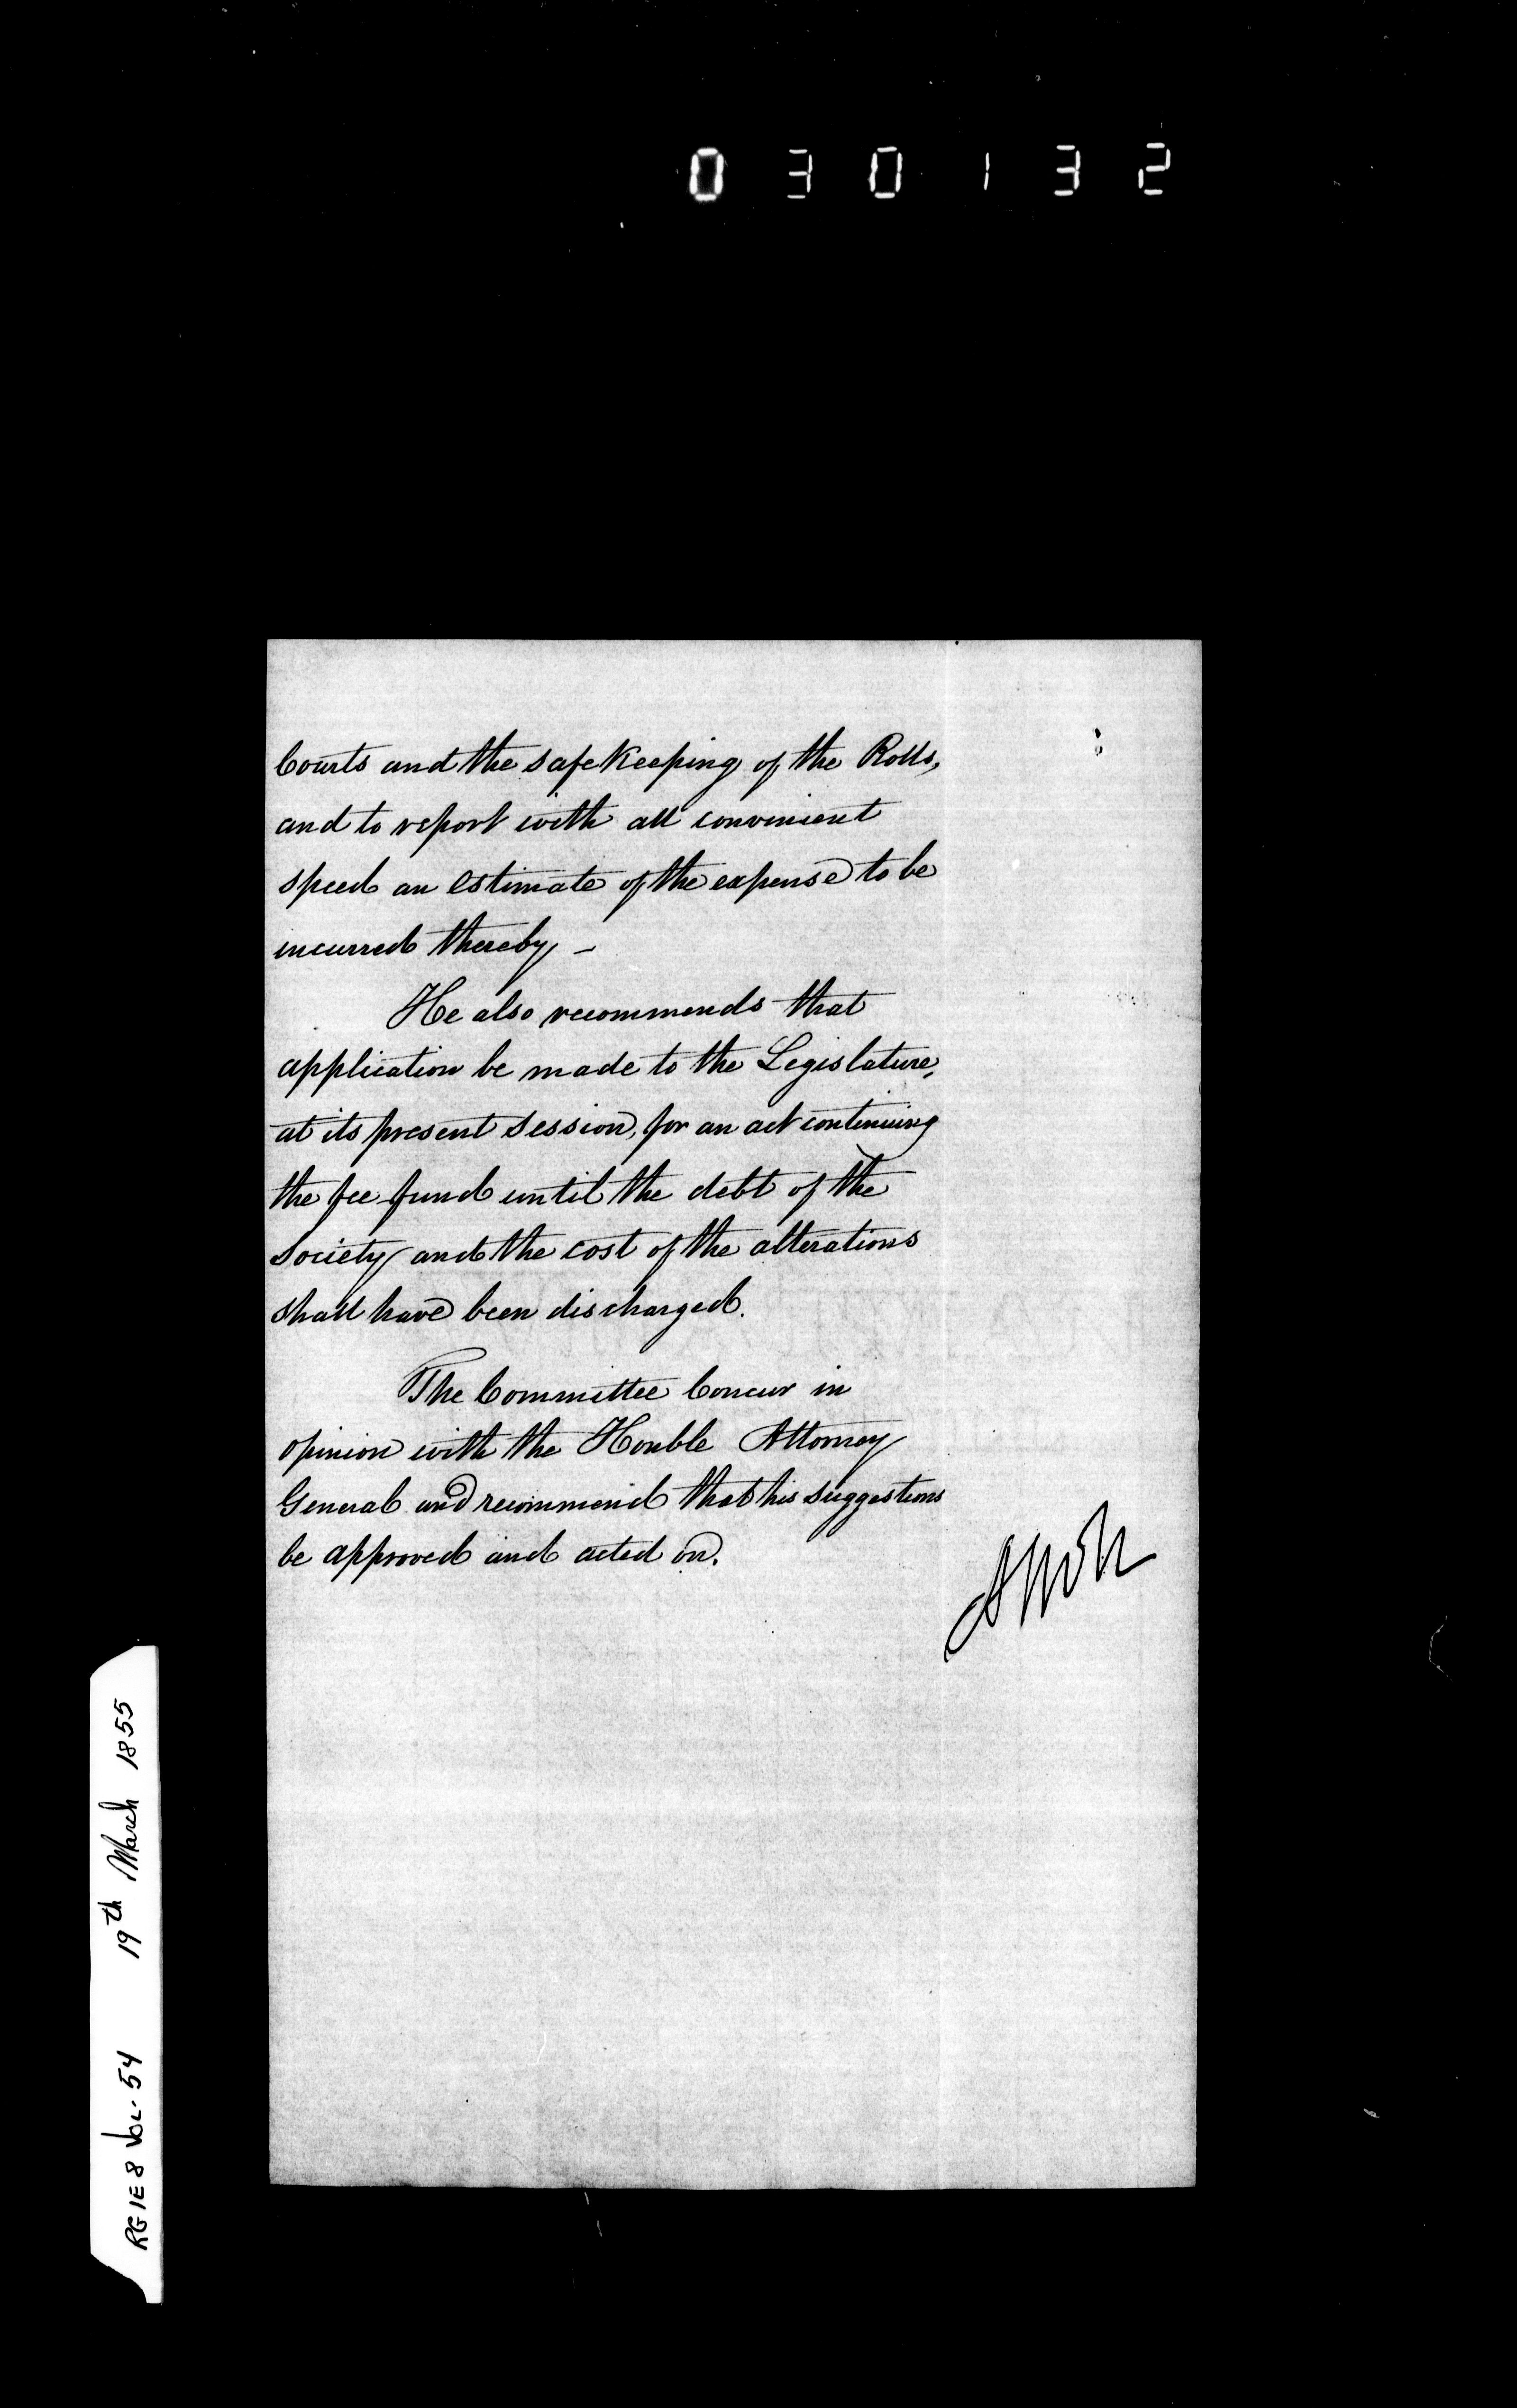 030132
Courts and the safe Keeping of the Rolls,
and to report with all convenient
speed an estimate of the expense to be
incurred thereby –
He also recommends that
application be made to the Legislature,
at its present session, for an act continuing
the fee fund until the debt of the
Society and the cost of the alterations
shall have been discharged.
The Committee Concur in
opinion with the Honble Attorney
General and recommend that his suggestions
be approved and acted on.
RG 1 E 8 VOL. 54 19th March 1855